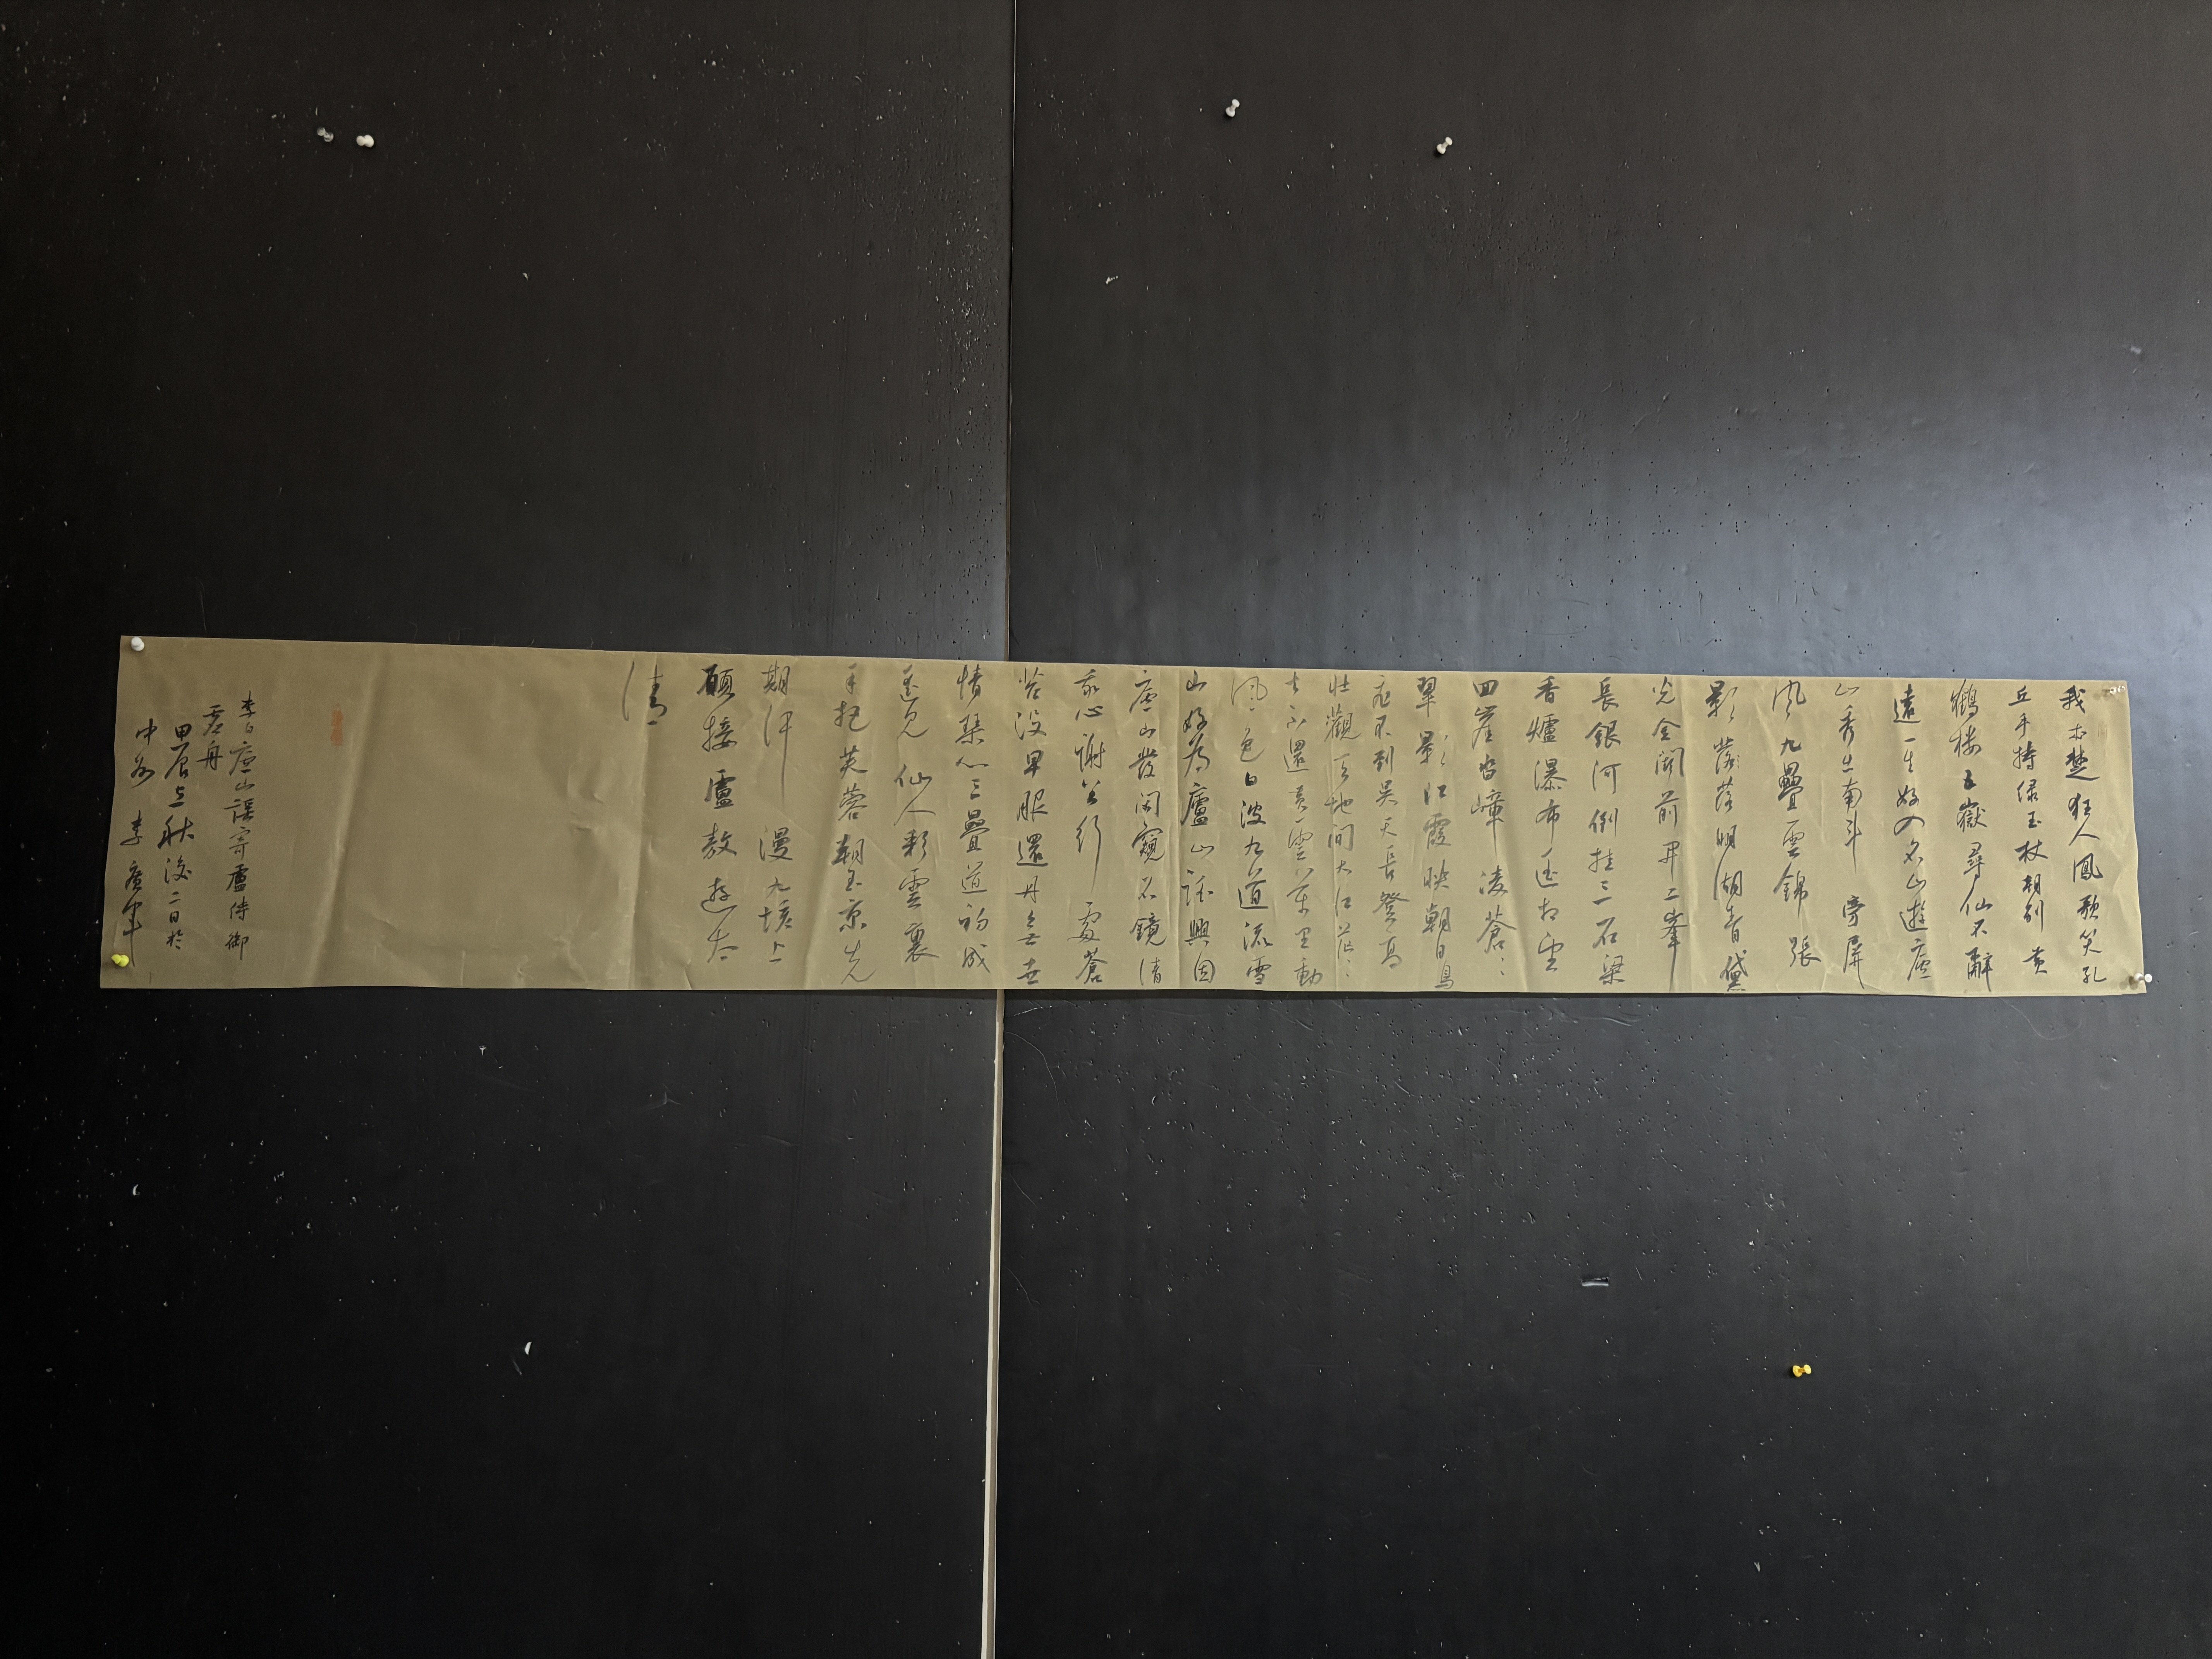 我本楚狂人鳳歌笑孔
丘手持绿玉杖朝别黄
鶴楼五嶽尋仙不辭
遠一生好入名山遊廬
山秀出南斗旁屏
風九疊雲錦張
影落落明湖青黛
光金闕前開二峯
長銀河倒挂三石梁
香爐瀑布遥相望
四崖沓嶂凌蒼〻
翠影江霞映朝日鳥
飛不到吳天長登高
壮觀天地間大江茫〻
去不還黄雲萬里動
風色白波九道流雪
山好為廬山謡興因
廬山發闲窺石鏡清
我心謝公行處蒼
苔没早服還丹無世
情琴心三疊道初成
遥見仙人彩雲裏
手把芙蓉朝玉京先
期汗漫九垓上
願接盧敖遊太
清
李白廬山謡寄盧侍御
虚舟
甲辰立秋後二日於
中州 李